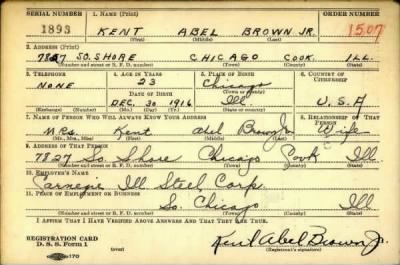 SERIAL NUMBER 1. NAME (Print) ORDER NUMBER
1893 KENT ABEL BROWN JR. 1507
(First) (Middle) (Last)
2. ADDRESS (Print)
7827 SO. SHORE CHICAGO COOK ILL.
(Number and street or R. F. D. number) (Town) (County) (State)
3. TELEPHONE 4. AGE IN YEARS 5. PLACE OF BIRTH 6. COUNTRY OF CITIZENSHIP
NONE 23 Chicago
DATE OF BIRTH (Town or county)
DEC. 30 1916 Ill. U.S.A
(Exchange) (Number) (Mo.) (Day) (Yr.) (State or country)
7. NAME OF PERSON WHO WILL ALWAYS KNOW YOUR ADDRESS 8. RELATIONSHIP OF THAT PERSON
Mrs. Kent Abel Brown Jr Wife
(Mr., Mrs., Miss) (First) (Middle) (Last)
9. ADDRESS OF THAT PERSON
7827 So. Shore Chicago Cook Ill
(Number and street or R. F. D. number) (Town) (County) (State)
10. EMPLOYER'S NAME
Carnegie Ill Steel Corp.
11. PLACE OF EMPLOYMENT OR BUSINESS
So. Chicago Ill
(Number and street or R. F. D. number) (Town) (County) (State)
I AFFIRM THAT I HAVE VERIFIED ABOVE ANSWERS AND THAT THEY ARE TRUE.
REGISTRATION CARD
D. S. S. Form 1 Kent Abel Brown Jr.
(Registrant's signature)